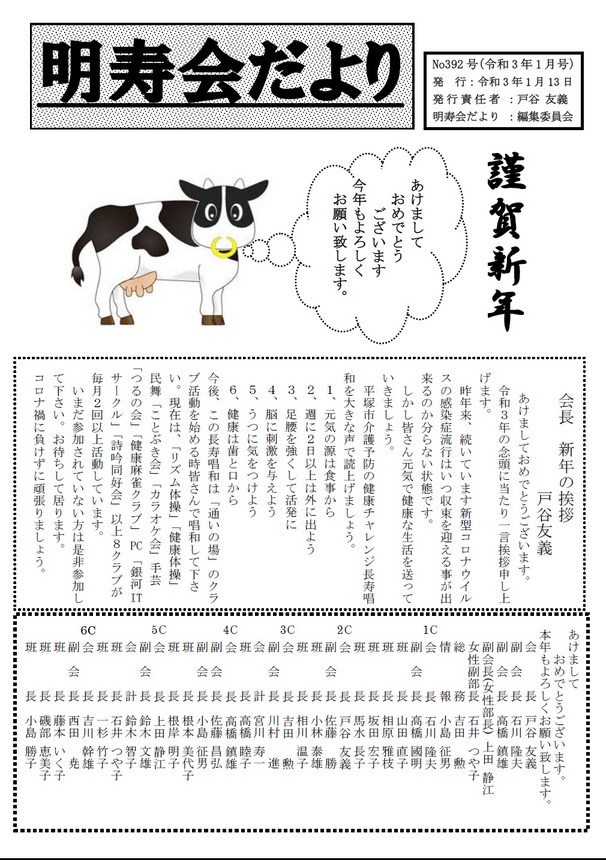 明寿会だより
No392号(令和3年1月号)
発　行：令和3年1月13日
発行責任者　：戸谷 友義
明寿会だより　：編集委員会
謹賀新年
あけまして
おめでとう
ございます
今年もよろしく
お願い致します。
会長　新年の挨拶
戸谷友義
あけましておめでとうございます。
令和3年の念頭に当たり一言挨拶申し上
げます。
昨年来、続いています新型コロナウイル
スの感染症流行はいつ収束を迎える事が出
来るのか分らない状態です。
しかし皆さん元気で健康な生活を送って
いきましょう。
平塚市介護予防の健康チャレンジ長寿唱
和を大きな声で読上げましょう。
1、元気の源は食事から
2、週に2日以上は外に出よう
3、足腰を強くして活発に
4、脳に刺激を与えよう
5、うつに気をつけよう
6、健康は歯と口から
今後、この長寿唱和は「通いの場」のクラ
ブ活動を始める時皆さんで唱和して下さ
い。現在は、「リズム体操」「健康体操」
民舞「ことぶき会」「カラオケ会」手芸
「つるの会」「健康麻雀クラブ」PC「銀河IT
サークル」「詩吟同好会」以上8クラブが
毎月2回以上活動しています。
いまだ参加されていない方は是非参加し
て下さい。お待ちして居ります。
コロナ禍に負けずに頑張りましょう。
あけまして
おめでとうございます。
本年もよろしくお願い致します。
会　長　戸谷 友義
副会長　石川 隆夫
副会長　高橋 鎮雄
副会長(女性部長) 上田 静江
女性副部長　石井 つや子
総　務　吉田 勲
情　報　小島 征男
1C　会　長　石川 隆夫
副会長　高橋 國明
班　長　山田 直子
班　長　相原 雅枝
班　長　坂田 宏子
班　長　馬水 長子
2C　会　長　戸谷 友義
副会長　佐藤 勝
班　長　小林 泰雄
班　長　相川 温子
3C　会　長　吉田 勲
副会長　川村 進
会　計　宮川 寿一
班　長　高橋 睦子
4C　会　長　高橋 鎮雄
副会長　佐藤 昌弘
副会長　小島 征男
班　長　根本 美代子
班　長　根岸 明子
5C　会　長　上田 静江
副会長　鈴木 文雄
会　計　鈴木 智子
班　長　石井 つや子
班　長　一杉 竹子
6C　会　長　吉川 幹雄
副会長　西田 一尭
班　長　藤本 いく子
班　長　磯部 恵美子
班　長　小島 勝子